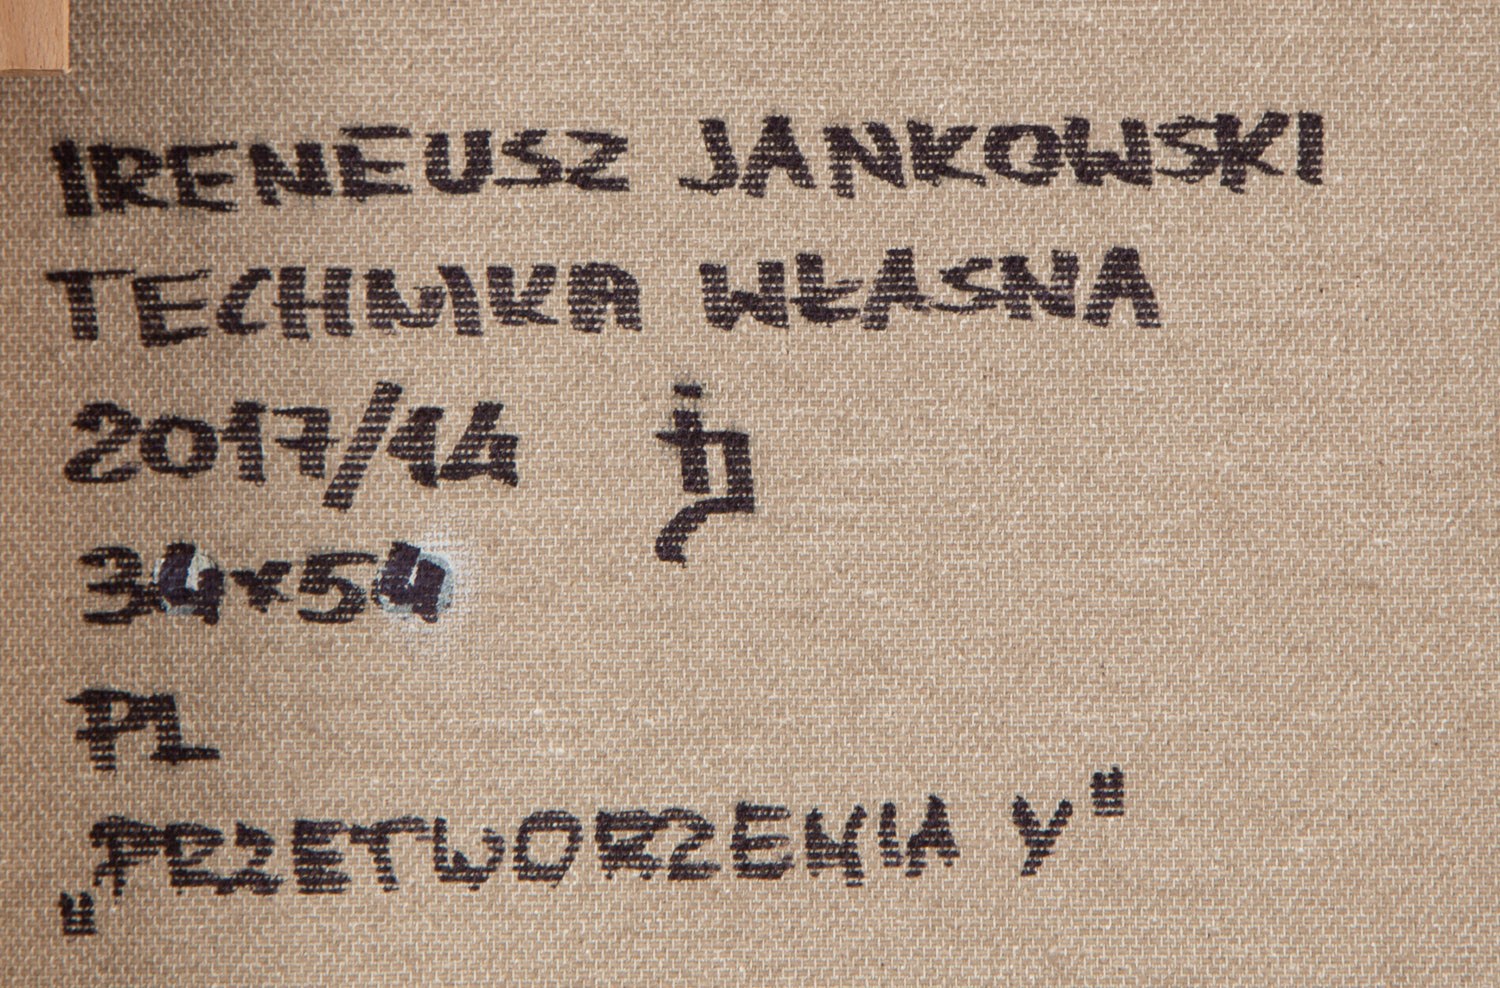 IRENEUSZ JANKOWSKI
TECHNIKA WŁASNA
2017/14
34x54
PL
„PRZETWORZENIA Y"